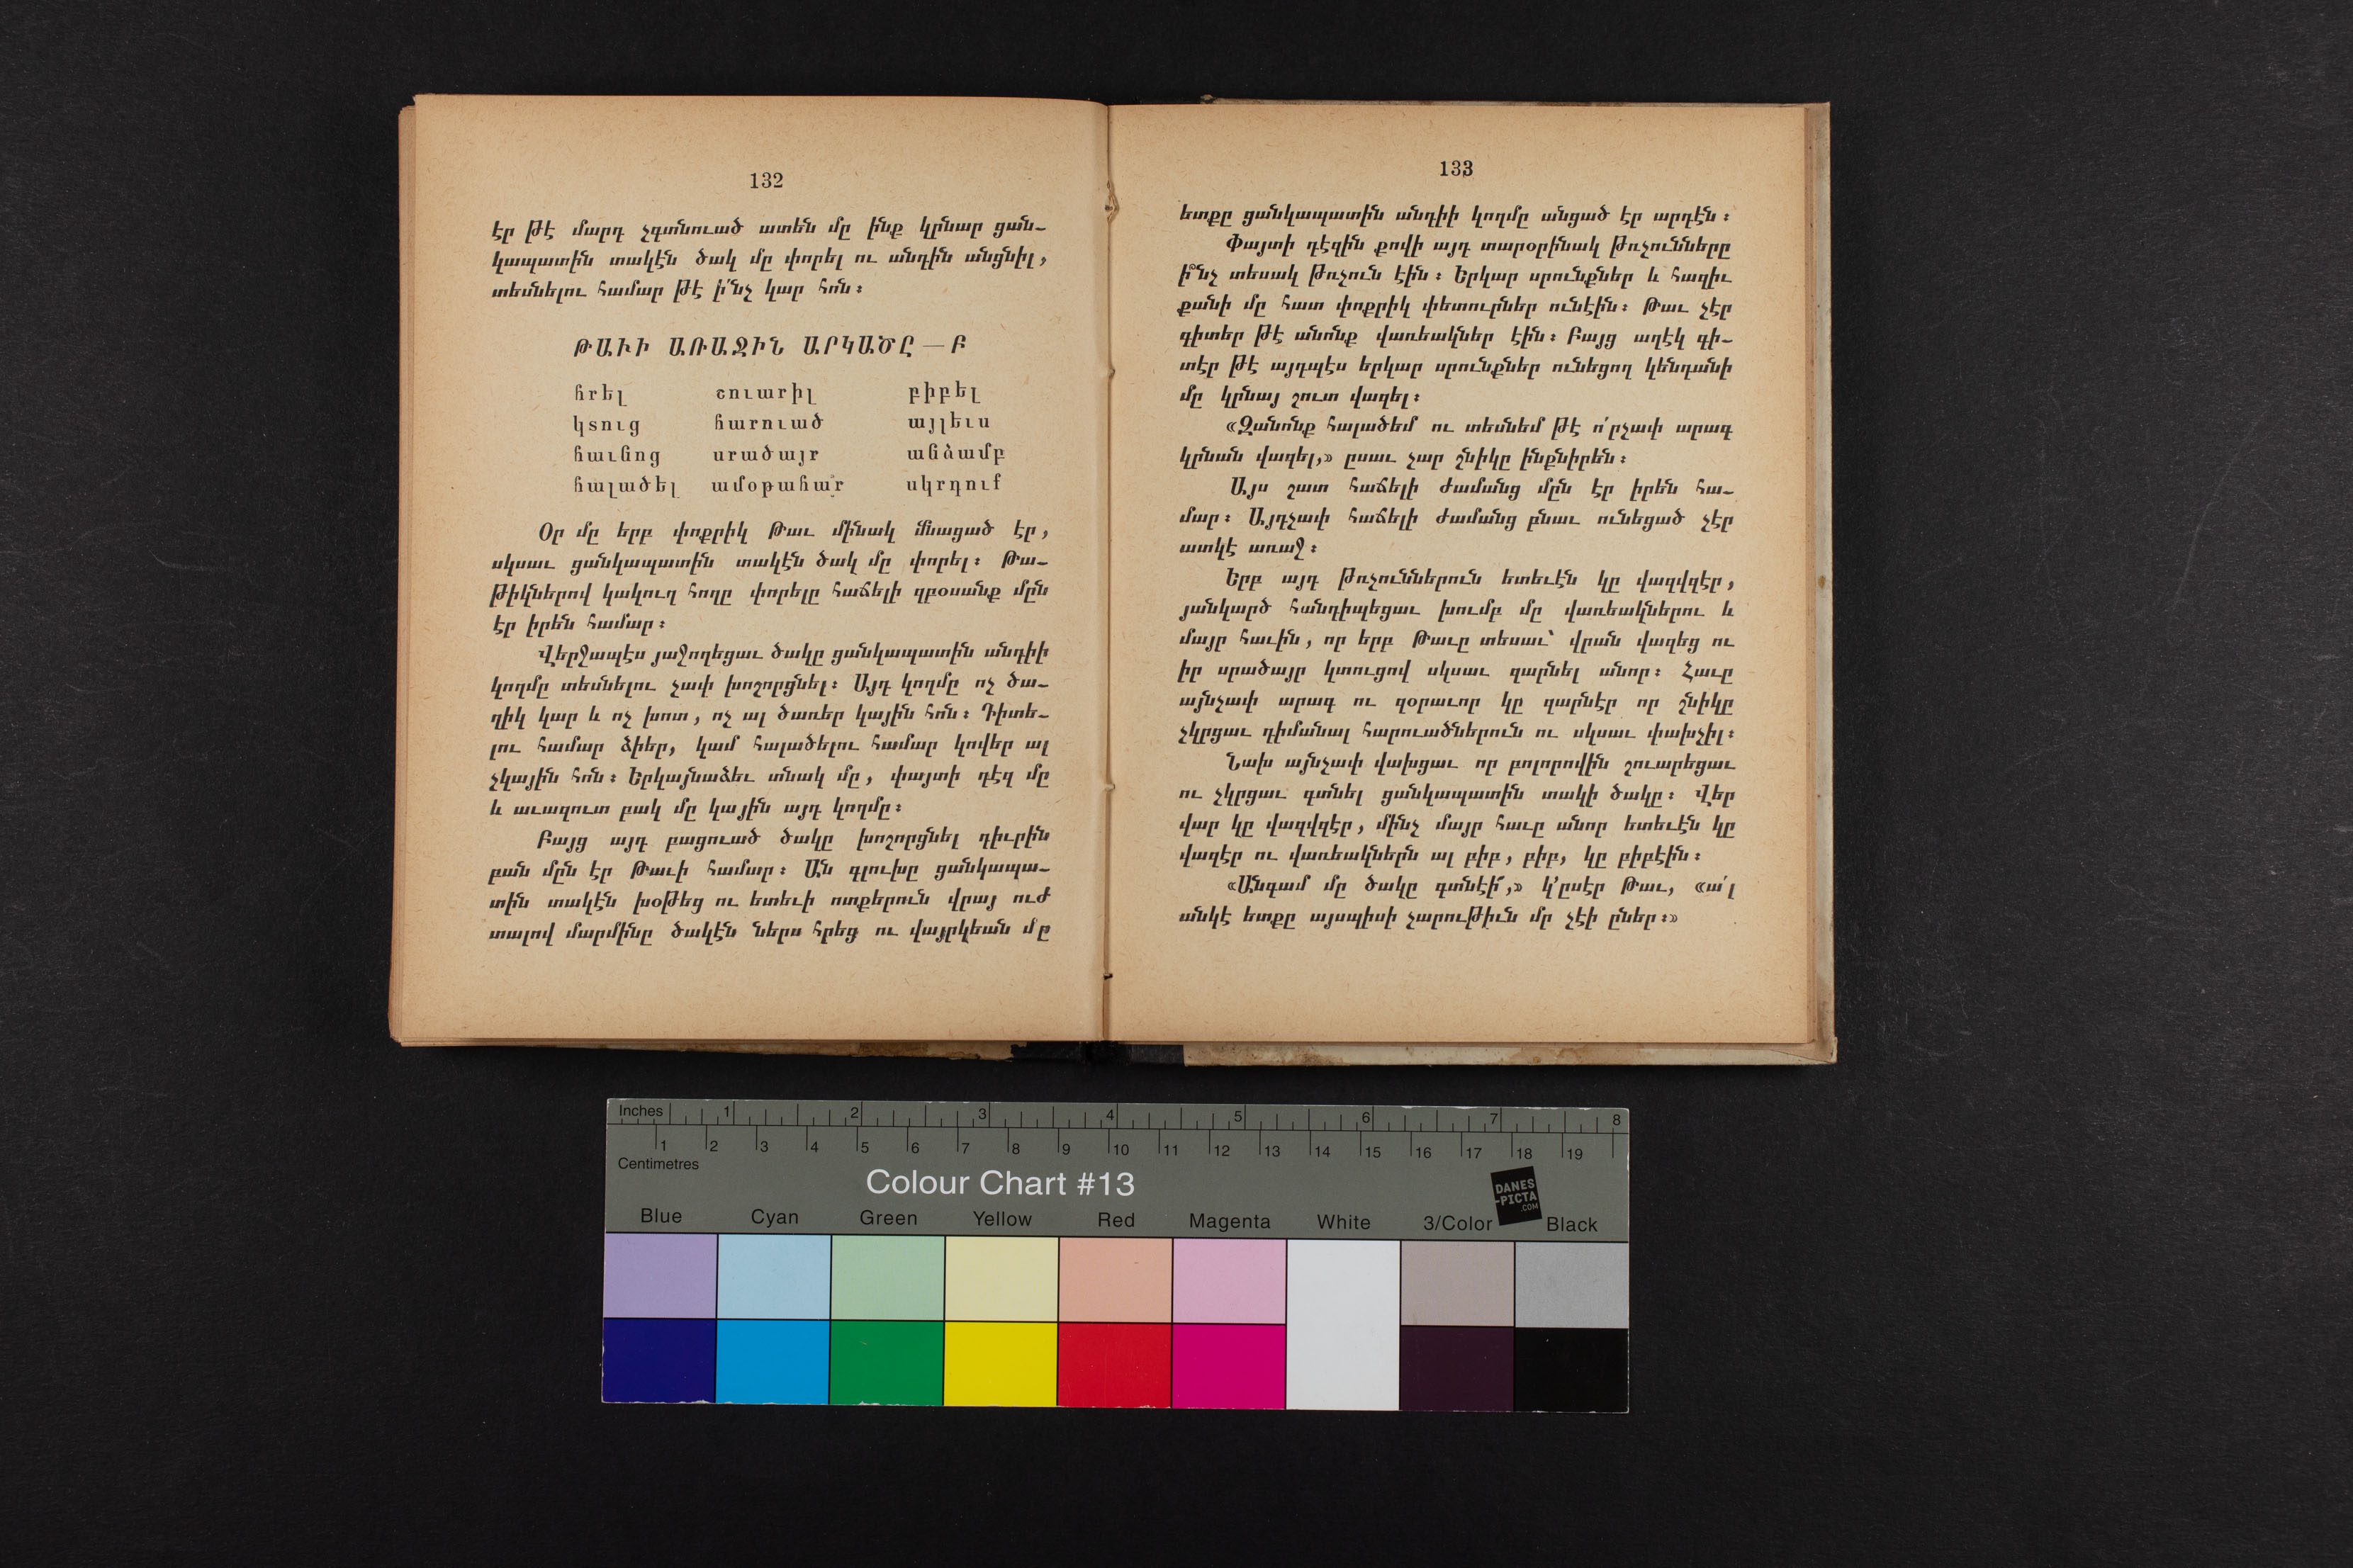 132
էր թէ մարդ չգտնուած ատեն մը ինք կրնար ցան-
կապատին տակէն ծակ մը փորել ու անդին անցնիլ,
տեսնելու համար թէ ի՛նչ կար հոն։
ԹԱՒԻ ԱՌԱՋԻՆ ԱՐԿԱԾԸ — Բ
հրել շուարիլ բիբել
կտուց հարուած այլեւս
հաւնոց սրածայր անձամբ
հալածել ամօթահար սկրդուք
Օր մը երբ փոքրիկ Թաւ մինակ մնացած էր,
սկսաւ ցանկապատին տակէն ծակ մը փորել։ Թա-
թիկներով կակուղ հողը փորելը հաճելի զբօսանք մըն
էր իրեն համար։
Վերջապէս յաջողեցաւ ծակը ցանկապատին անդիի
կողմը տեսնելու չափ խոշորցնել։ Այդ կողմը ոչ ծա-
ղիկ կար և ոչ խոտ, ոչ ալ ծառեր կային հոն։ Դիտե-
լու համար ձիեր, կամ հալածելու համար կովեր ալ
չկային հոն։ Երկայնաձեւ տնակ մը, փայտի դէզ մը
և աւազուտ բակ մը կային այդ կողմը։
Բայց այդ բացուած ծակը խոշորցնել դիւրին
բան մըն էր Թաւի համար։ Ան գլուխը ցանկապա-
տին տակէն խօթեց ու ետեւի ոտքերուն վրայ ուժ
տալով մարմինը ծակէն ներս հրեց ու վայրկեան մը
133
ետքը ցանկապատին անդիի կողմը անցած էր արդէն։
Փայտի դէզին քովի այդ տարօրինակ թռչունները
ի՞նչ տեսակ թռչուն էին։ Երկար սրունքներ և հազիւ
քանի մը հատ փոքրիկ փետուրներ ունէին։ Թաւ չէր
գիտեր թէ անոնք վառեակներ էին։ Բայց աղէկ գի-
տէր թէ այդպէս երկար սրունքներ ունեցող կենդանի
մը կրնայ շուտ վազել։
«Զանոնք հալածեմ ու տեսնեմ թէ ո՛րչափ արագ
կրնան վազել,» ըսաւ չար շնիկը ինքնիրեն։
Այս շատ հաճելի ժամանց մըն էր իրեն հա-
մար։ Այդչափ հաճելի ժամանց բնաւ ունեցած չէր
ատկէ առաջ։
Երբ այդ թռչուններուն ետեւէն կը վազվզէր,
յանկարծ հանդիպեցաւ խումբ մը վառեակներու և
մայր հաւին, որ երբ Թաւը տեսաւ՝ վրան վազեց ու
իր սրածայր կտուցով սկսաւ զարնել անոր։ Հաւը
այնչափ արագ ու զօրաւոր կը զարնէր որ շնիկը
չկրցաւ դիմանալ հարուածներուն ու սկսաւ փախչիլ։
Նախ այնչափ վախցաւ որ բոլորովին շուարեցաւ
ու չկրցաւ գտնել ցանկապատին տակի ծակը։ Վեր
վար կը վազվզէր, մինչ մայր հաւը անոր ետեւէն կը
վազէր ու վառեակներն ալ բիբ, բիբ, կը բիբէին։
«Անգամ մը ծակը գտնէի՜,» կ՚ըսէր Թաւ, «ա՛լ
անկէ ետքը այսպիսի չարութիւն մը չէի ըներ։»
Inches 1 2 3 4 5 6 7 8
1 2 3 4 5 6 7 8 9 10 11 12 13 14 15 16 17 18 19
Centimetres
Colour Chart #13
DANES
-PICTA
.COM
Blue Cyan Green Yellow Red Magenta White 3/Color Black